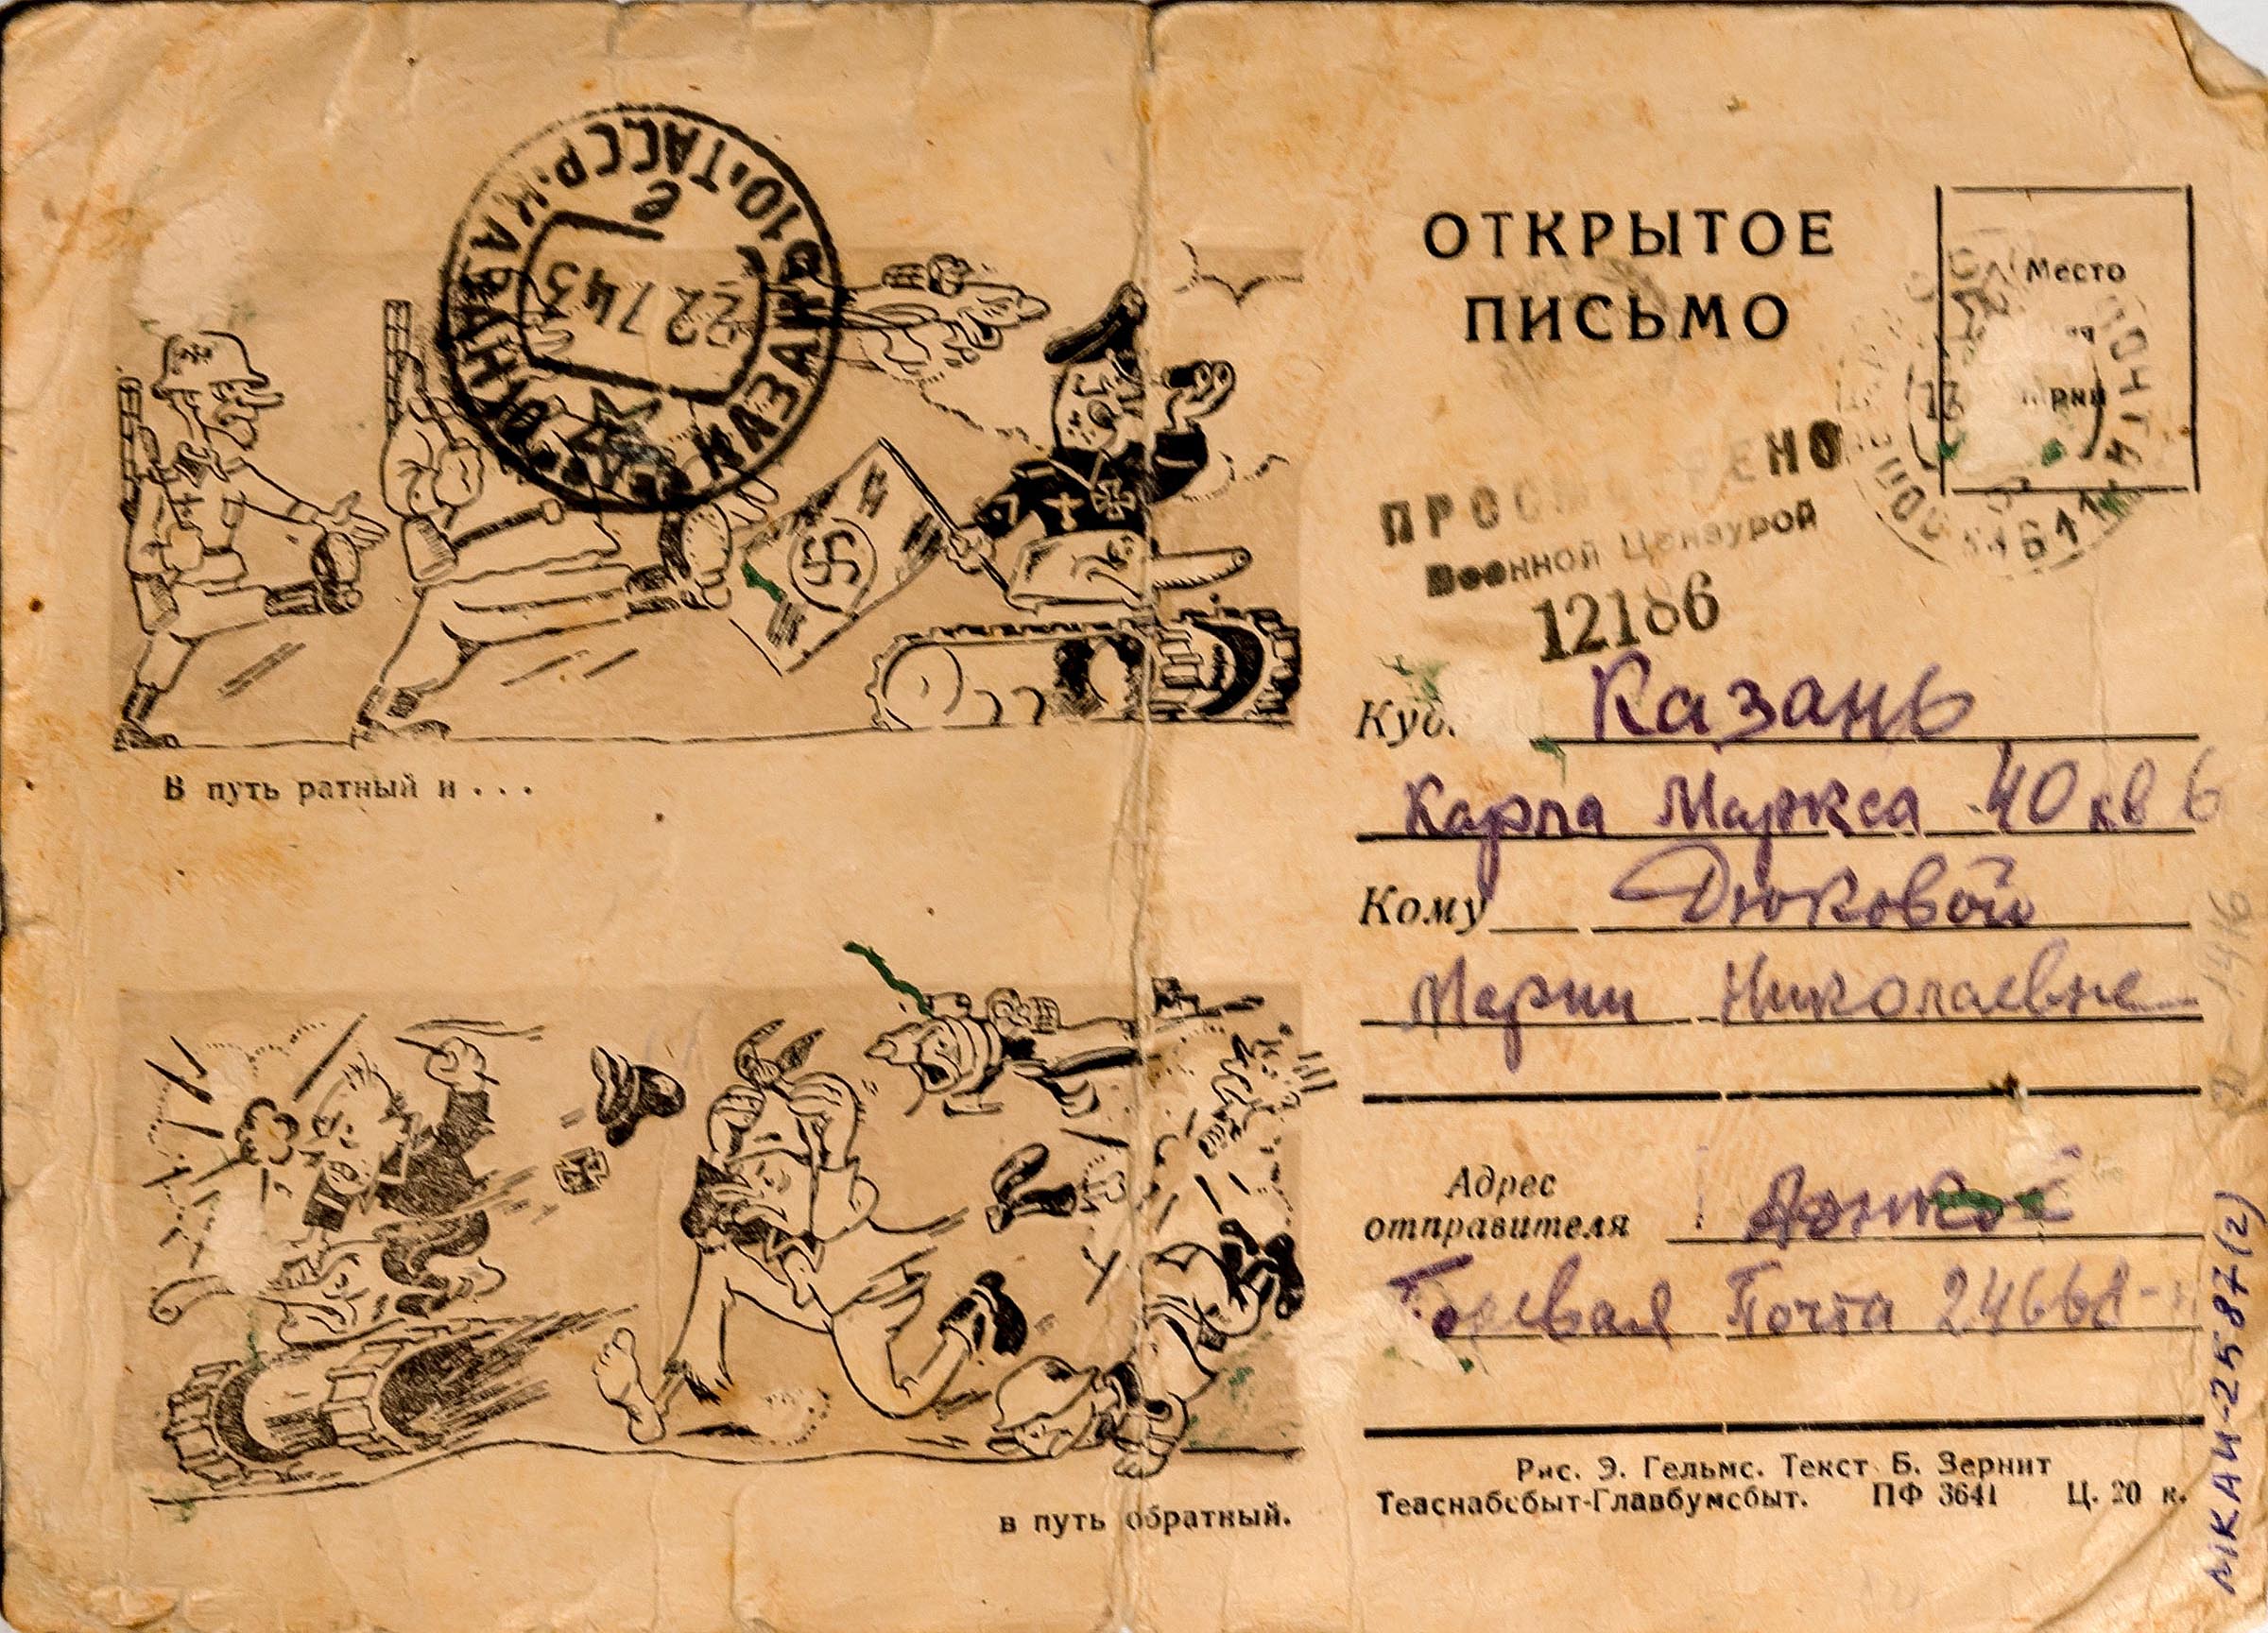 КАЗАНЬ 10. ТАССР. KAZAN
22 7 43
е
В путь ратный и . . .
в путь обратный.
ОТКРЫТОЕ
ПИСЬМО
Место
Военной Цензурой
12186
Казань
Карла Маркса 40 кв 6
Кому Дюковой
Марии Николаевне
Адрес
отправителя
Полевая Почта 24668
Рис. Э. Гельмс. Текст Б. Зернит
Теаснабсбыт-Главбумсбыт. ПФ 3641 Ц. 20 к.
МКАИ-2587(2)